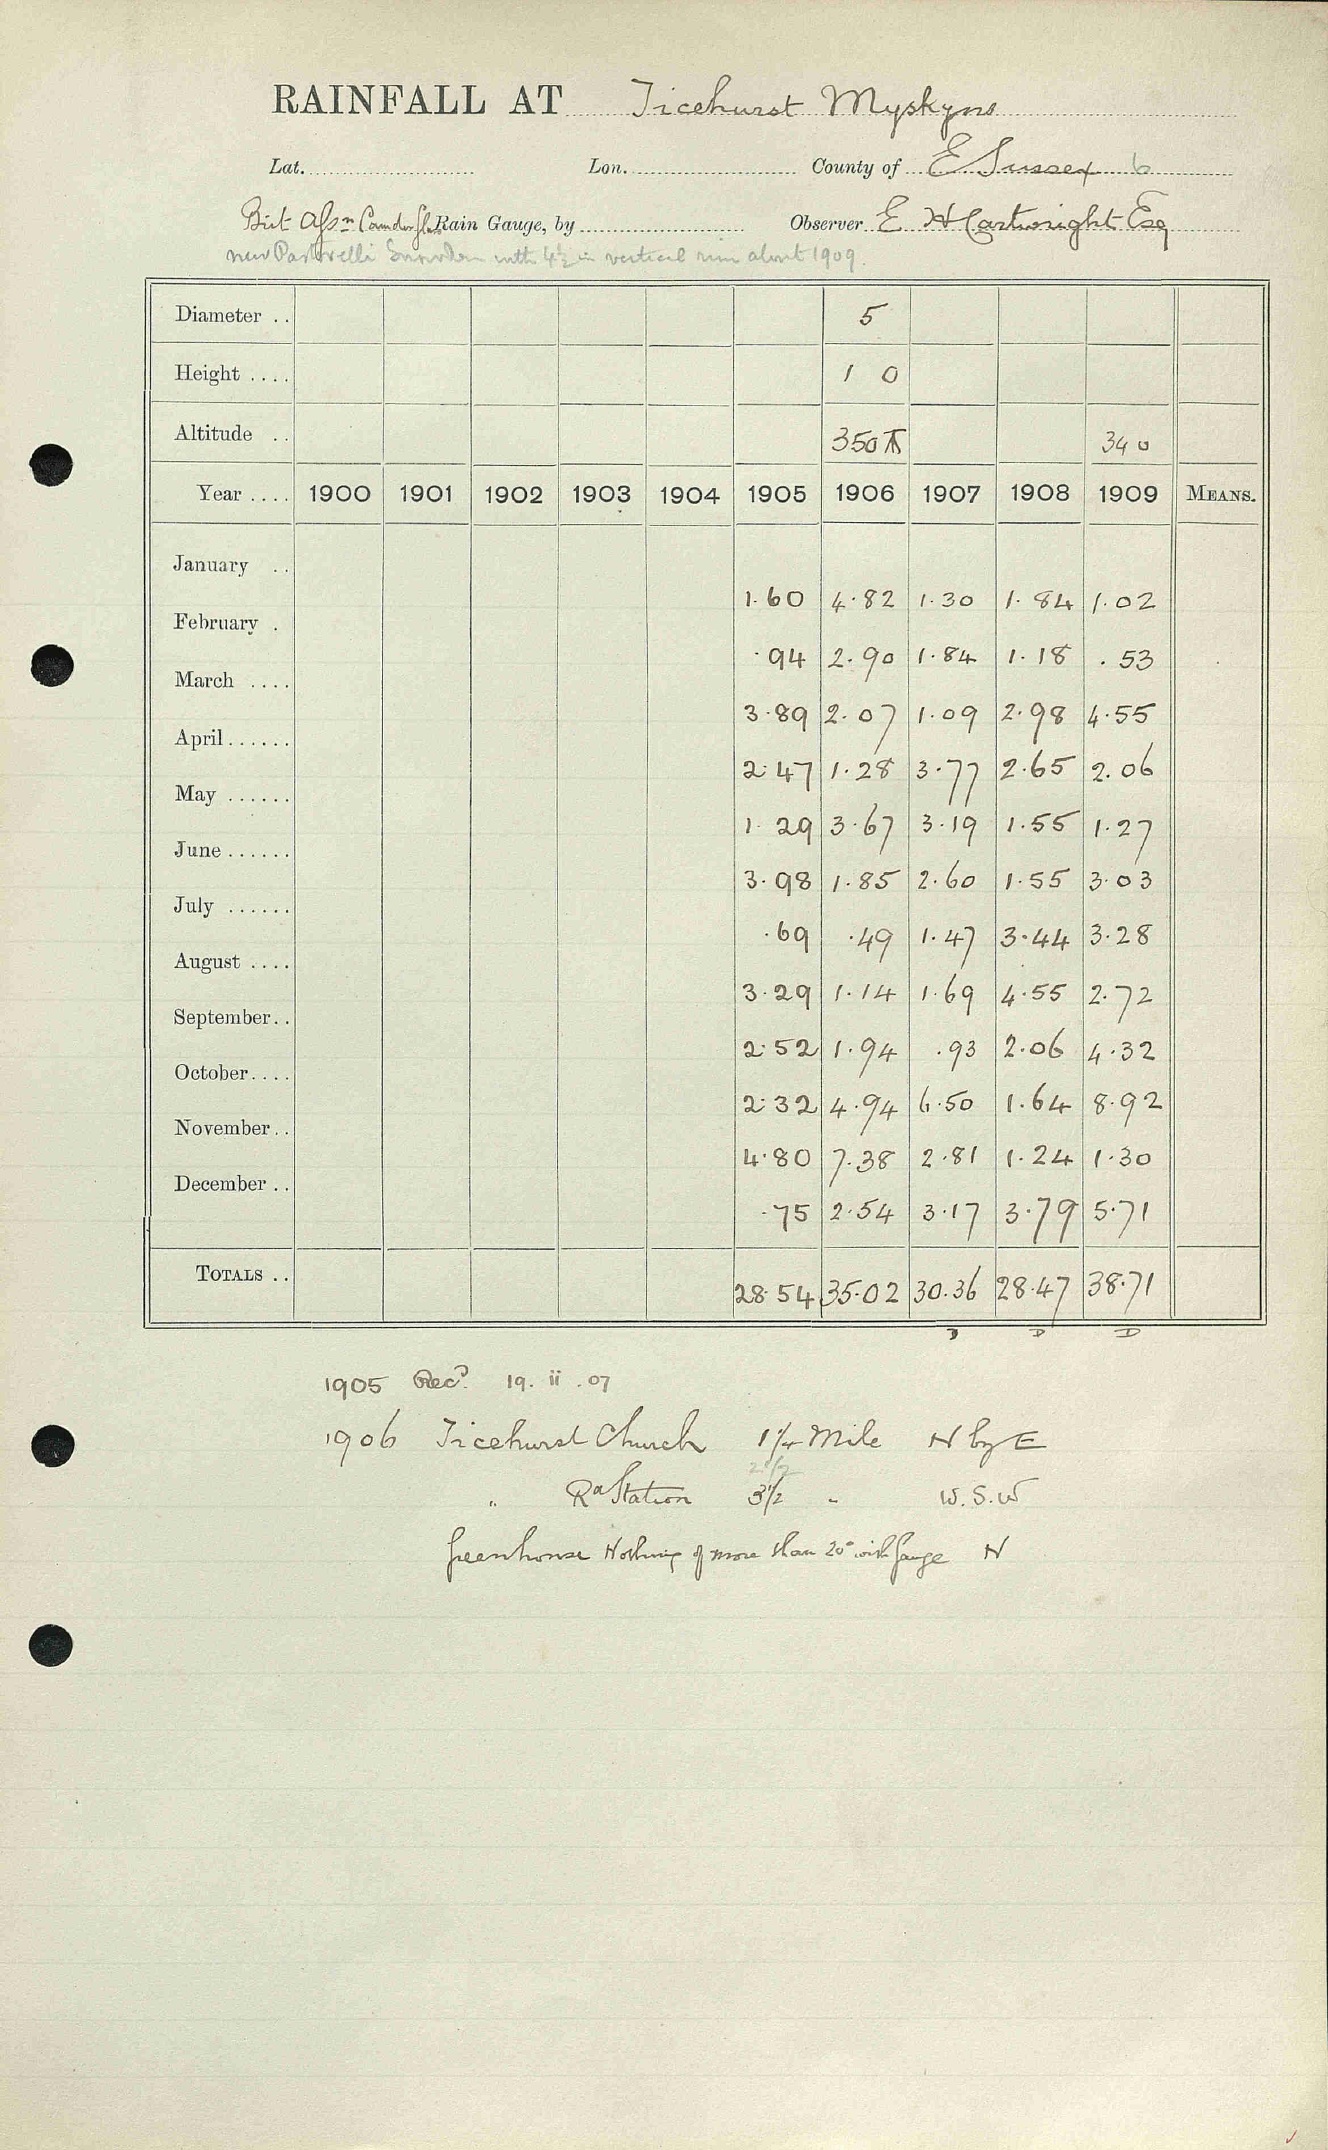 RAINFALL AT Ticehurst Myskyns
Lat. Lon. County of E Sussex 6
Brit Assn Camden Sq Rain Gauge, by Observer E H Cartwright Esq
new Pastorelli Snowdon with 4½ in vertical rim about 1909.
Diameter .. 5
Height .... 1 0
Altitude .. 350 ft 340
Year .... 1900 1901 1902 1903 1904 1905 1906 1907 1908 1909 MEANS.
January .. 1.60 4.82 1.30 1.84 1.02
February . .94 2.90 1.84 1.18 .53
March .... 3.89 2.07 1.09 2.98 4.55
April...... 2.47 1.28 3.77 2.65 2.06
May ...... 1.29 3.67 3.19 1.55 1.27
June...... 3.98 1.85 2.60 1.55 3.03
July ...... .69 .49 1.47 3.44 3.28
August .... 3.29 1.14 1.69 4.55 2.72
September.. 2.52 1.94 .93 2.06 4.32
October.... 2.32 4.94 6.50 1.64 8.92
November.. 4.80 7.38 2.81 1.24 1.30
December .. .75 2.54 3.17 3.79 5.71
TOTALS .. 28.54 35.02 30.36 28.47 38.71
D D D
1905 Recd. 19. ii .07
1906 Ticehurst Church 1¼ Mile N by E
2½
" Ra Station 3½ " W.S.W
Greenhouse Nothing of more than 20° with gauge N